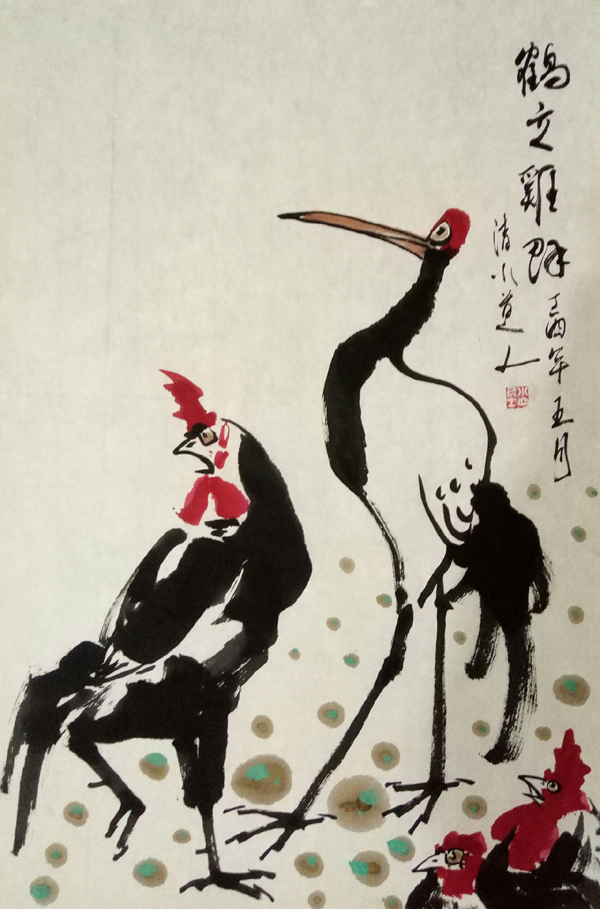 鶴立雞群
丁酉年五月
清水道人